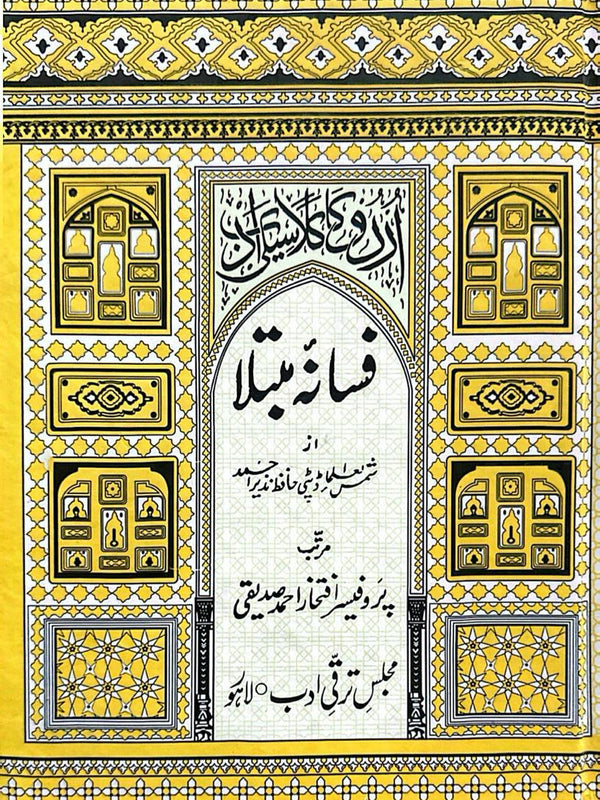 اُردُو کا کلاسیکی ادب
فسانۂ مبتلا
از
شمس العلما ڈپٹی حافظ نذیر احمد
مرتّب
پروفیسر افتخار احمد صدیقی
مجلسِ ترقّیِ ادب ○ لاہور